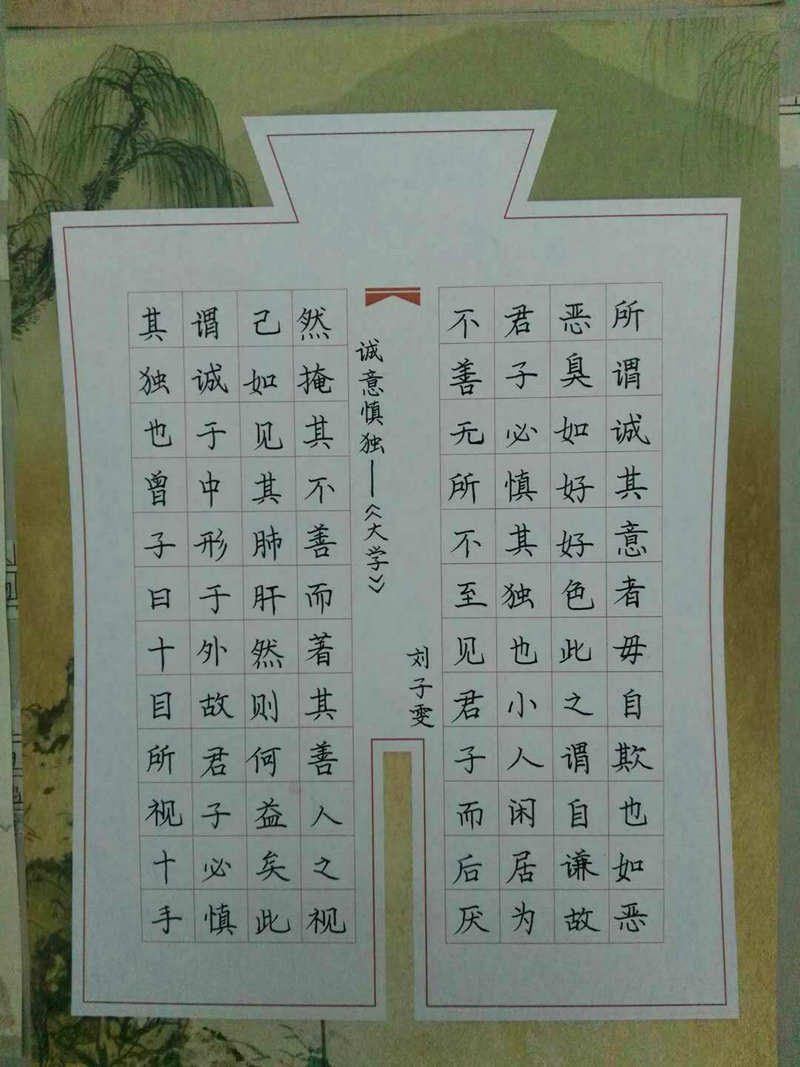 所谓诚其意者毋自欺也如恶
恶臭如好好色此之谓自谦故
君子必慎其独也小人闲居为
不善无所不至见君子而后厌
诚意慎独——《大学》
刘子雯
然掩其不善而著其善人之视
己如见其肺肝然则何益矣此
谓诚于中形于外故君子必慎
其独也曾子曰十目所视十手